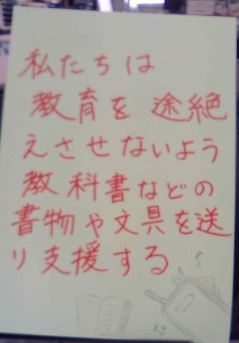 私たちは
教育を途絶
えさせないよう
教科書などの
書物や文具を送
り支援する